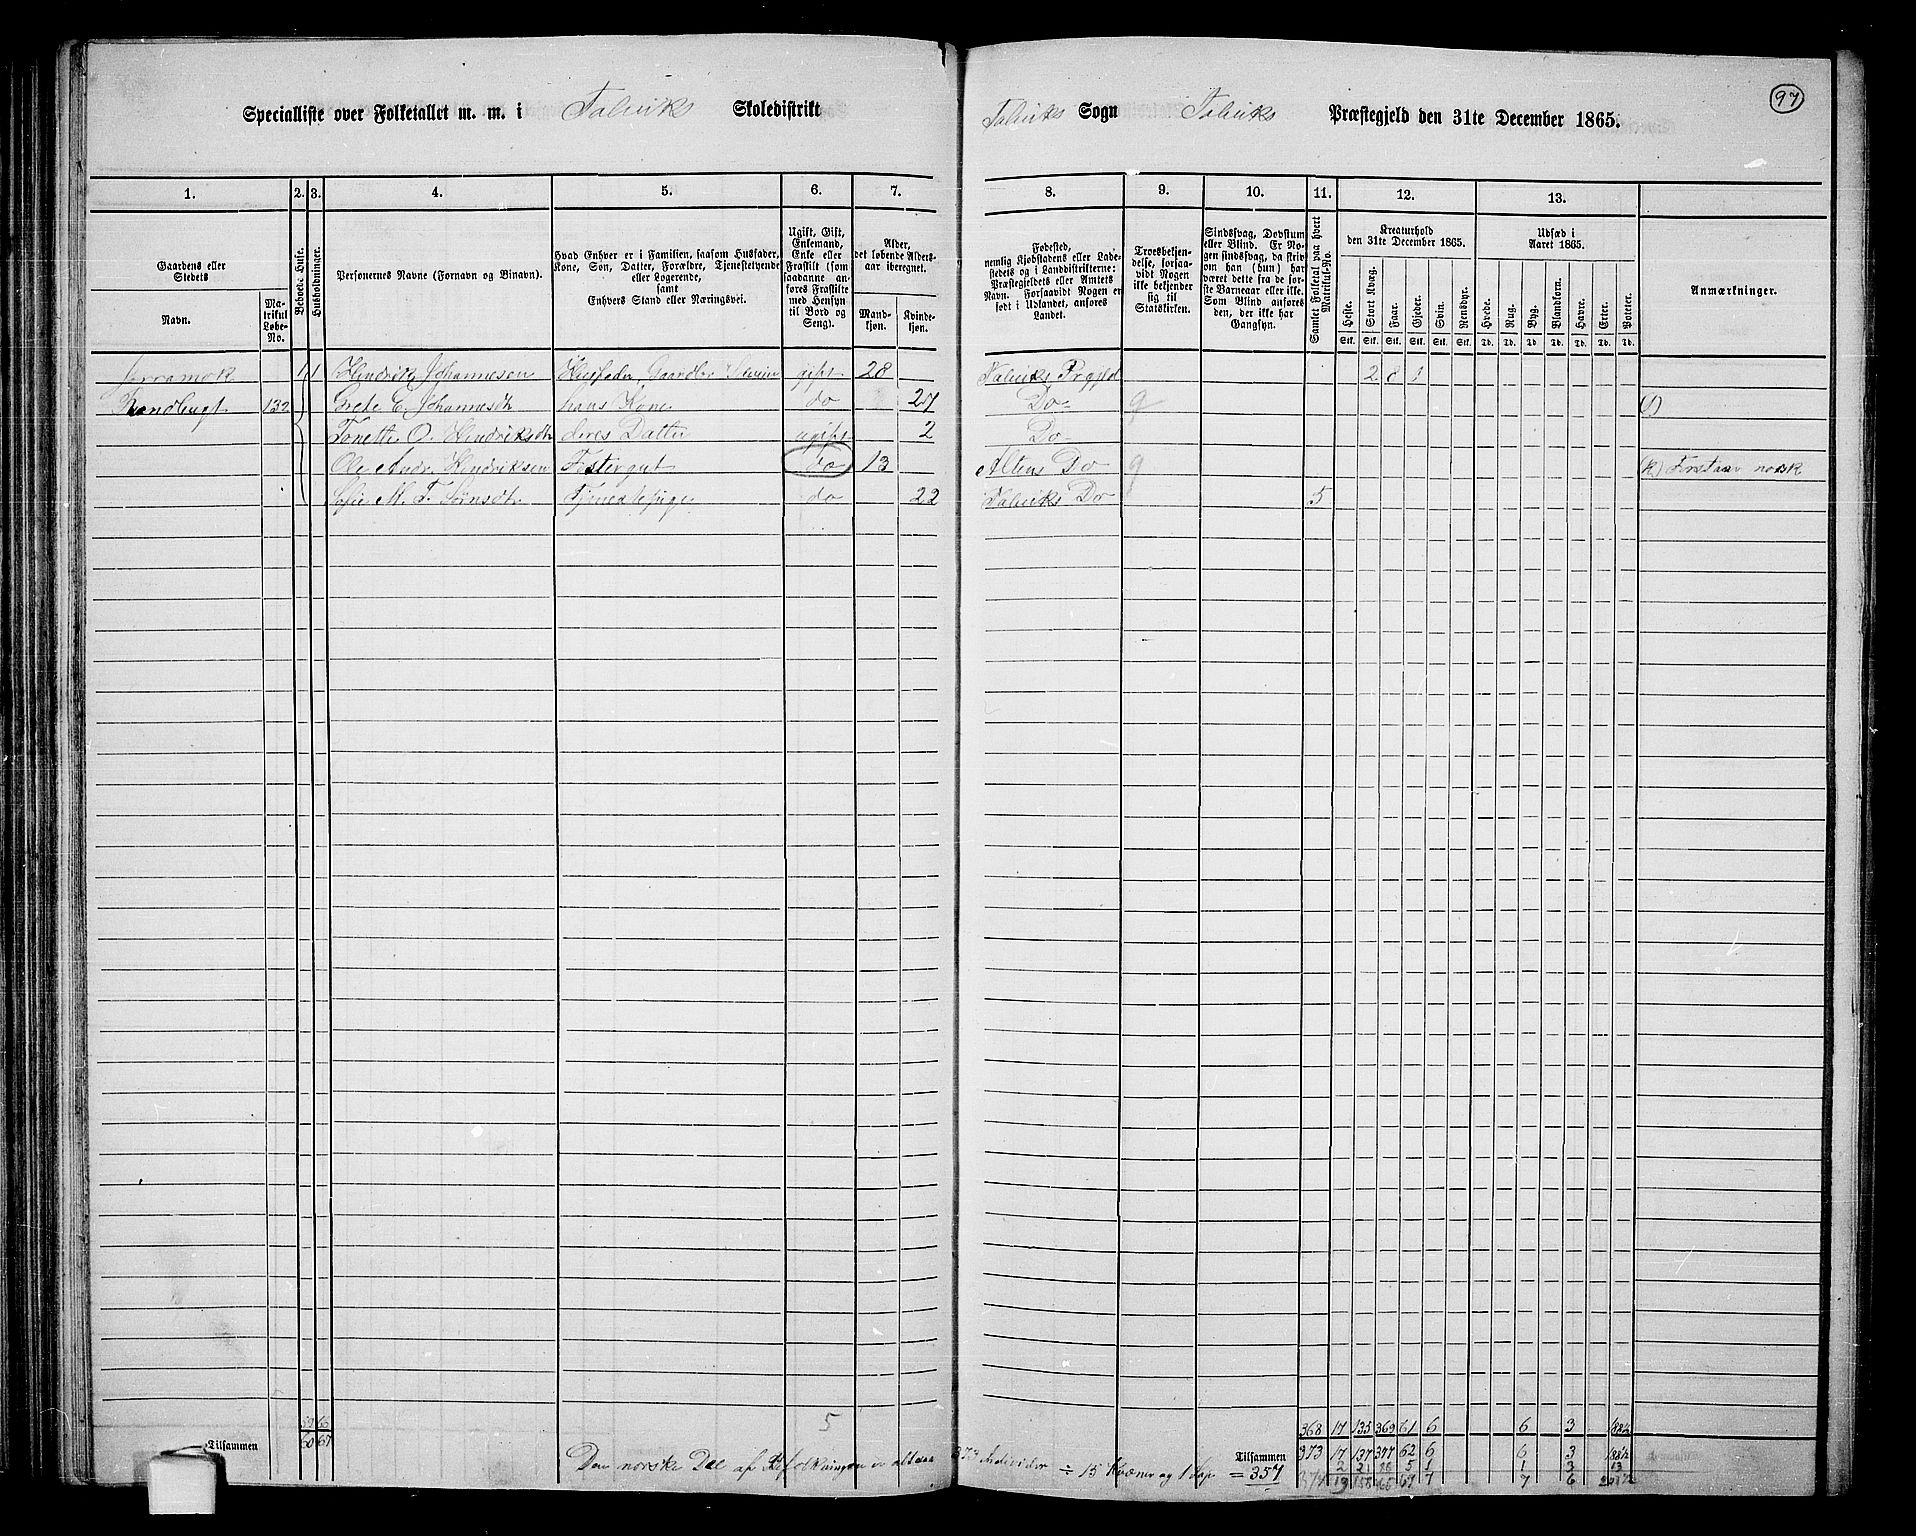 97
Specialliste over Folketallet m. m. i Talviks Skoledistrikt Talviks Sogn Talviks Præstegjeld den 31te December 1865.
1. 2. 3. 4. 5. 6. 7. 8. 9. 10. 11. 12. 13.
Gaardens eller Stedets
Navn.
Matrikul Løbe-No.
Beboede Huse.
Husholdninger.
Personernes Navne (Fornavn og Binavn).
Hvad Enhver er i Familien, saasom Husfader, Kone, Søn, Datter, Forældre, Tjenestetyende eller Logerende, samt Enhvers Stand eller Næringsvei.
Ugift, Gift, Enkemand, Enke eller Fraskilt (som saadanne anføres Fraskilte med Hensyn til Bord og Seng).
Alder, det løbende Aldersaar iberegnet.
Mandkjøn.
Kvindekjøn.
Fødested, nemlig Kjøbstadens eller Ladestedets og i Landdistrikterne: Præstegjeldets eller Amtets Navn. Forsaavidt Nogen er født i Udlandet, anføres Landet.
Troesbekjendelse, forsaavidt Nogen ikke bekjender sig til Statskirken.
Sindssvag, Døvstum eller Blind. Er Nogen sindssvag, da skrives om han (hun) har været dette fra de første Barneaar eller ikke. Som Blind anføres den, der ikke har Gangsyn.
Samlet Folketal paa hvert Matrikul-No.
Kreaturhold den 31te December 1865.
Heste. Stort Kvæg. Faar. Gjeder. Svin. Rensdyr.
Udsæd i Aaret 1865.
Hvede. Rug. Byg. Blandkorn. Havre. Erter. Poteter.
Stk. Stk. Stk. Stk. Stk. Stk. Td. Td. Td. Td. Td. Td. Td.
Anmærkninger.
1 1 Hendrik Johannesen Husfader Gaardbr gift 28 Talviks Prgjld 2 8 1
132 Grete E. Johannesdt hans Kone do 27 Do
Tonette O. Hendriksdt deres Datter ugift 2 Do
Ole Andr. Hendriksen Fostergut do 13 Altens Do (k) Forstaar norsk
M. F. Tjenestepige do 22 Talviks Do 5
59 66 5 368 17 135 369 61 6 6 3
Tilsammen 60 67 Tilsammen 373 17 137 377 62 6 6 3
Den norske Del af Befolkningen er altsaa 373 Individer ÷ 15 Kvæner og 1 Lap = 357